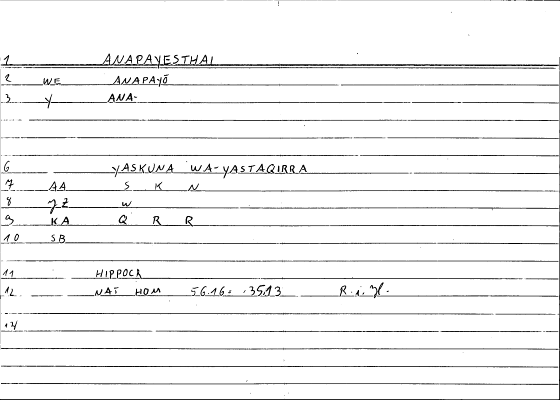 1 ANAPAYESTHAI
2 WE ANAPAYŌ
3 Y ANA-
6 YASKUNA WA-YASTAQIRRA
7 AA S K N
8 W
9 KA Q R R
10 SB
11 HIPPOCR
12 NAT HOM 56.16 3513
14